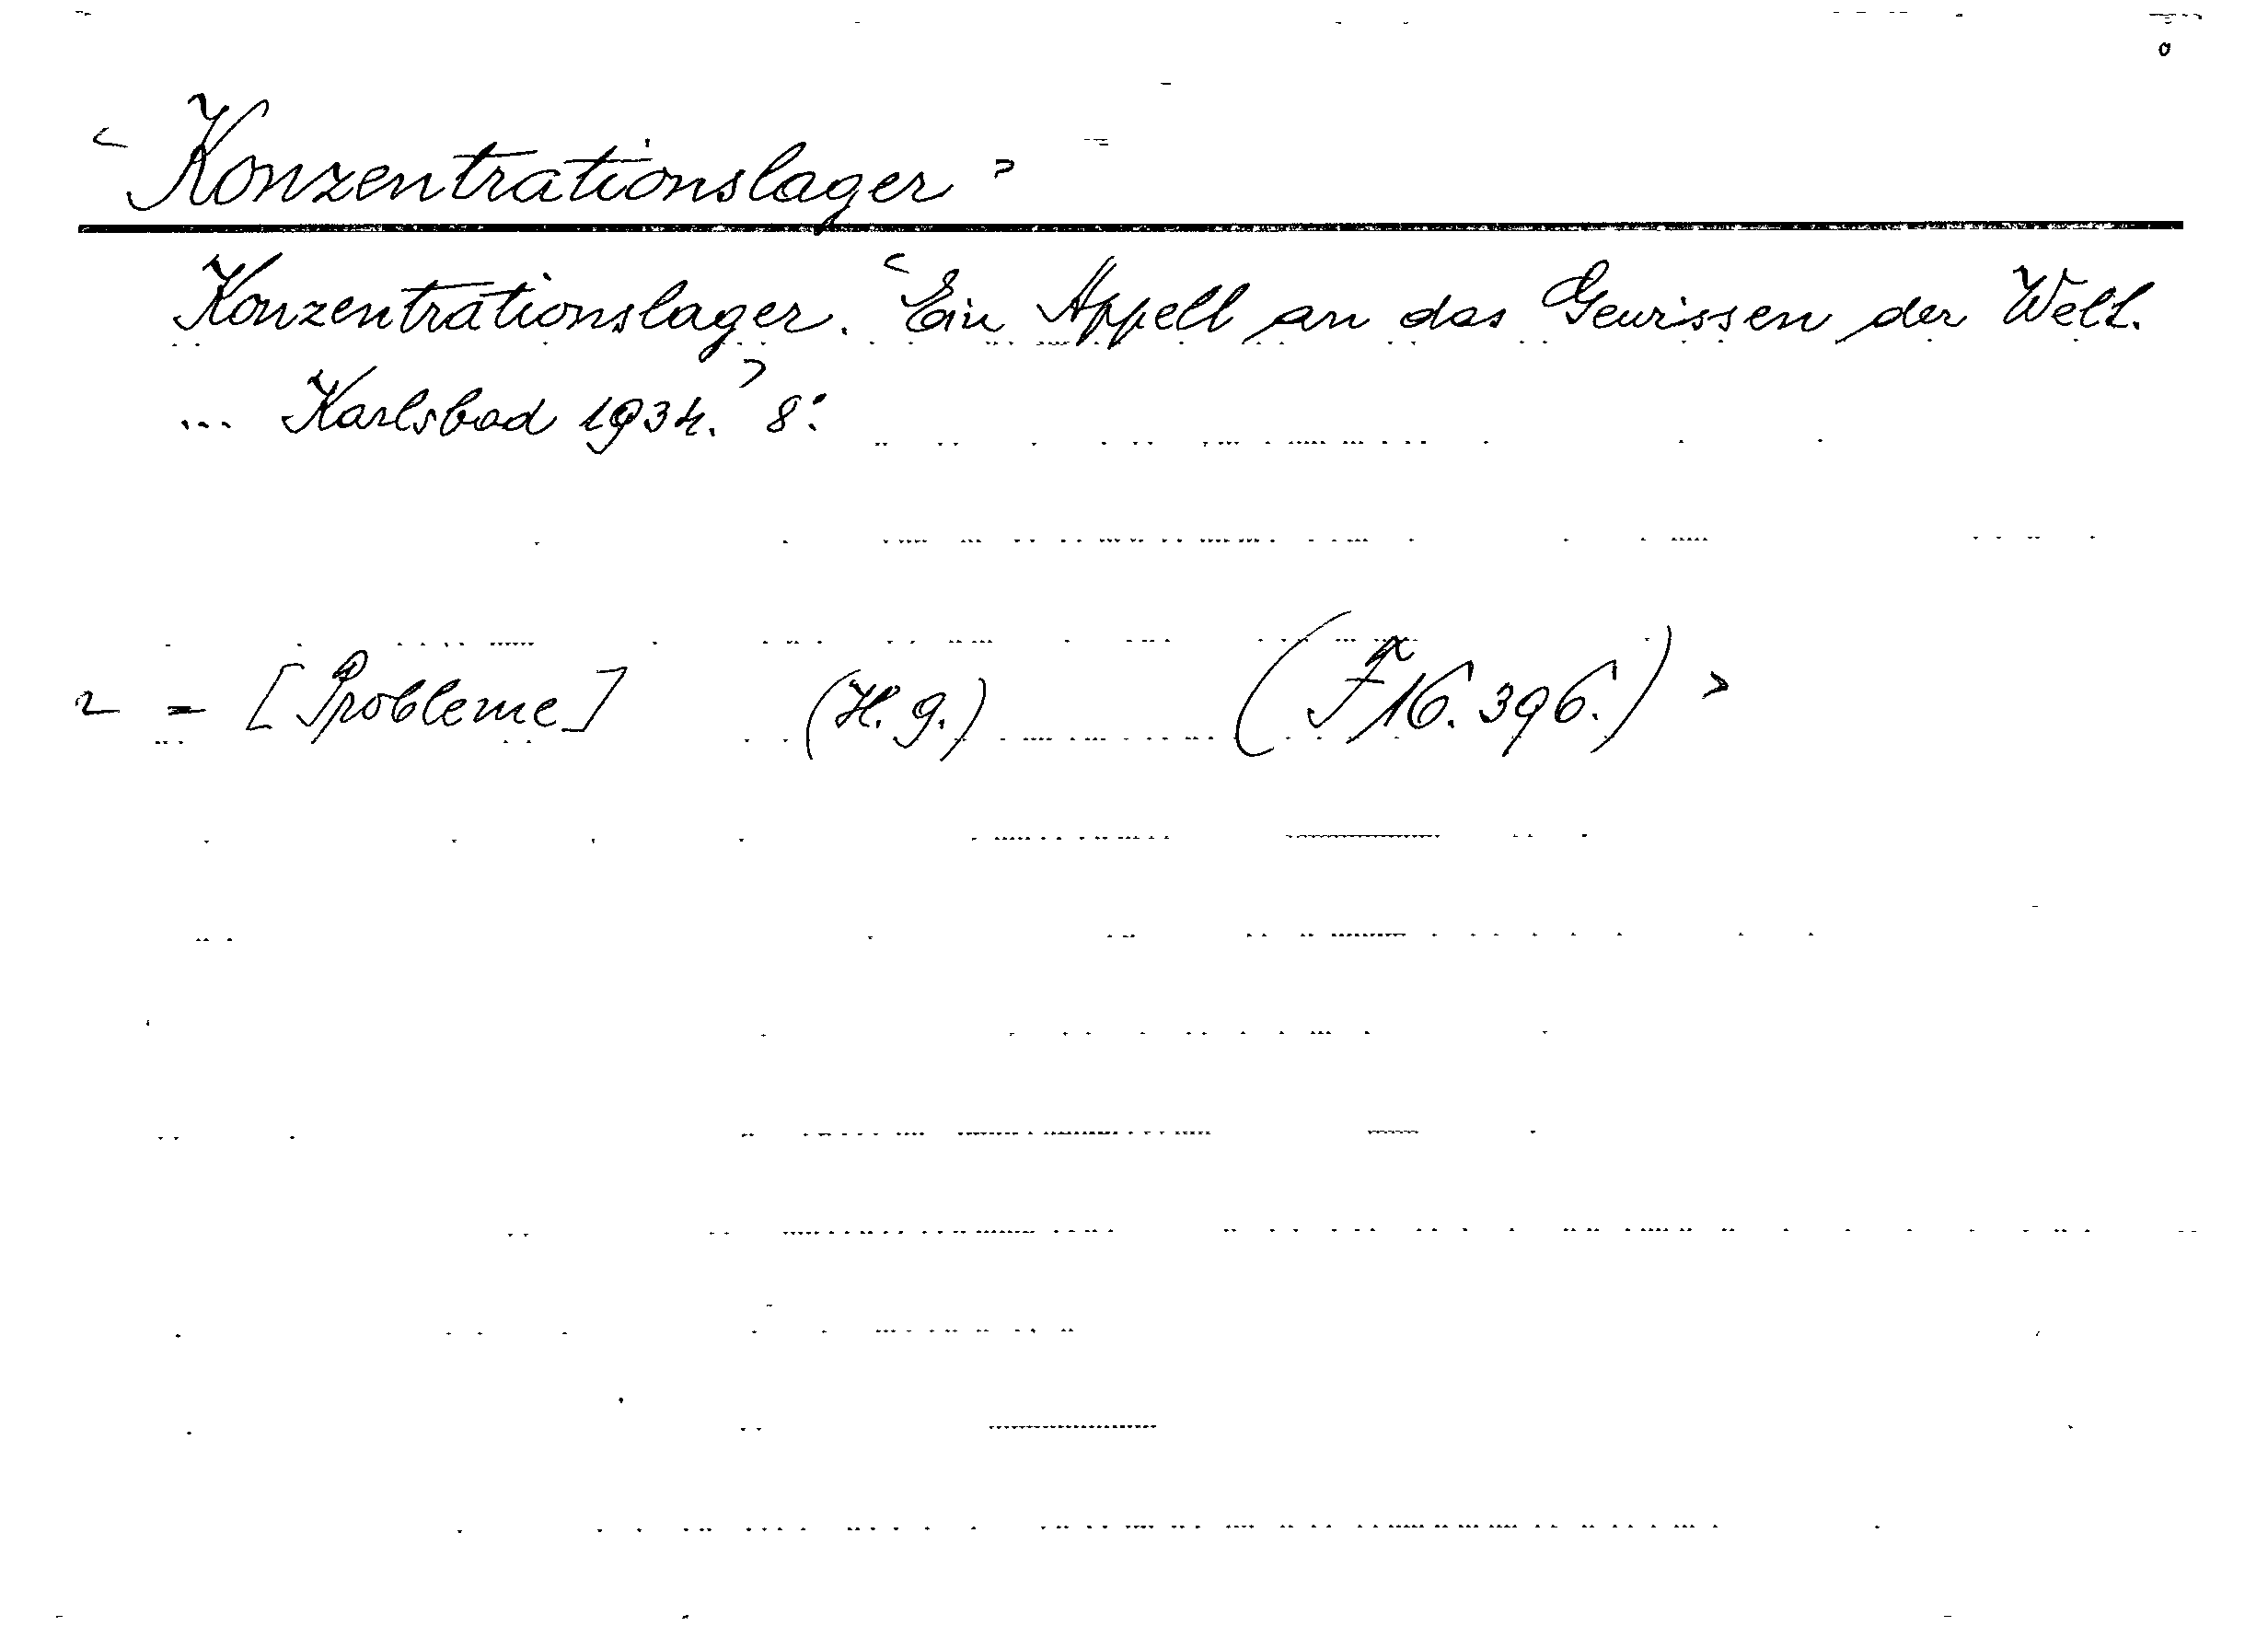 < Konzentrationslager >
Konzentrationslager. < Ein Appell an das Gewissen der Welt.
... Karlsbad 1934. > 8°.
= [Probleme] (H. 9.) (F 16. 396.) >